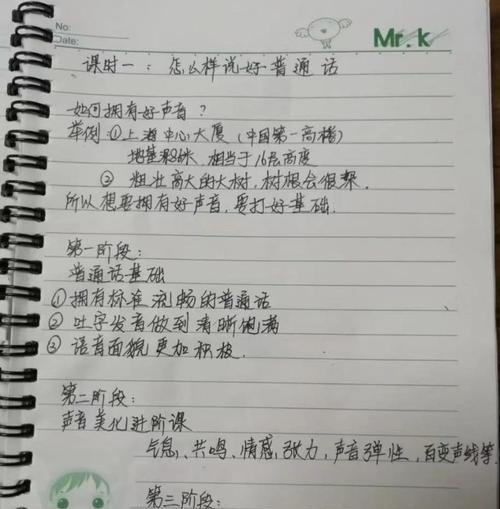 No:
Date:
Mr. k
课时一：怎么样说好普通话
如何拥有好声音？
举例①上海中心大厦（中国第一高楼）
地基深米，相当于16层高度
② 粗壮高大的大树，树根会很
所以想要拥有好声音，要打好基础.
第一阶段：
普通话基础
① 拥有标准流畅的普通话
② 吐字发音做到清晰饱满
③ 语音面貌更加积极.
第二阶段：
声音美化进阶课
气息、共鸣、情感、张力，声音弹性，百变声线等
第三阶段：